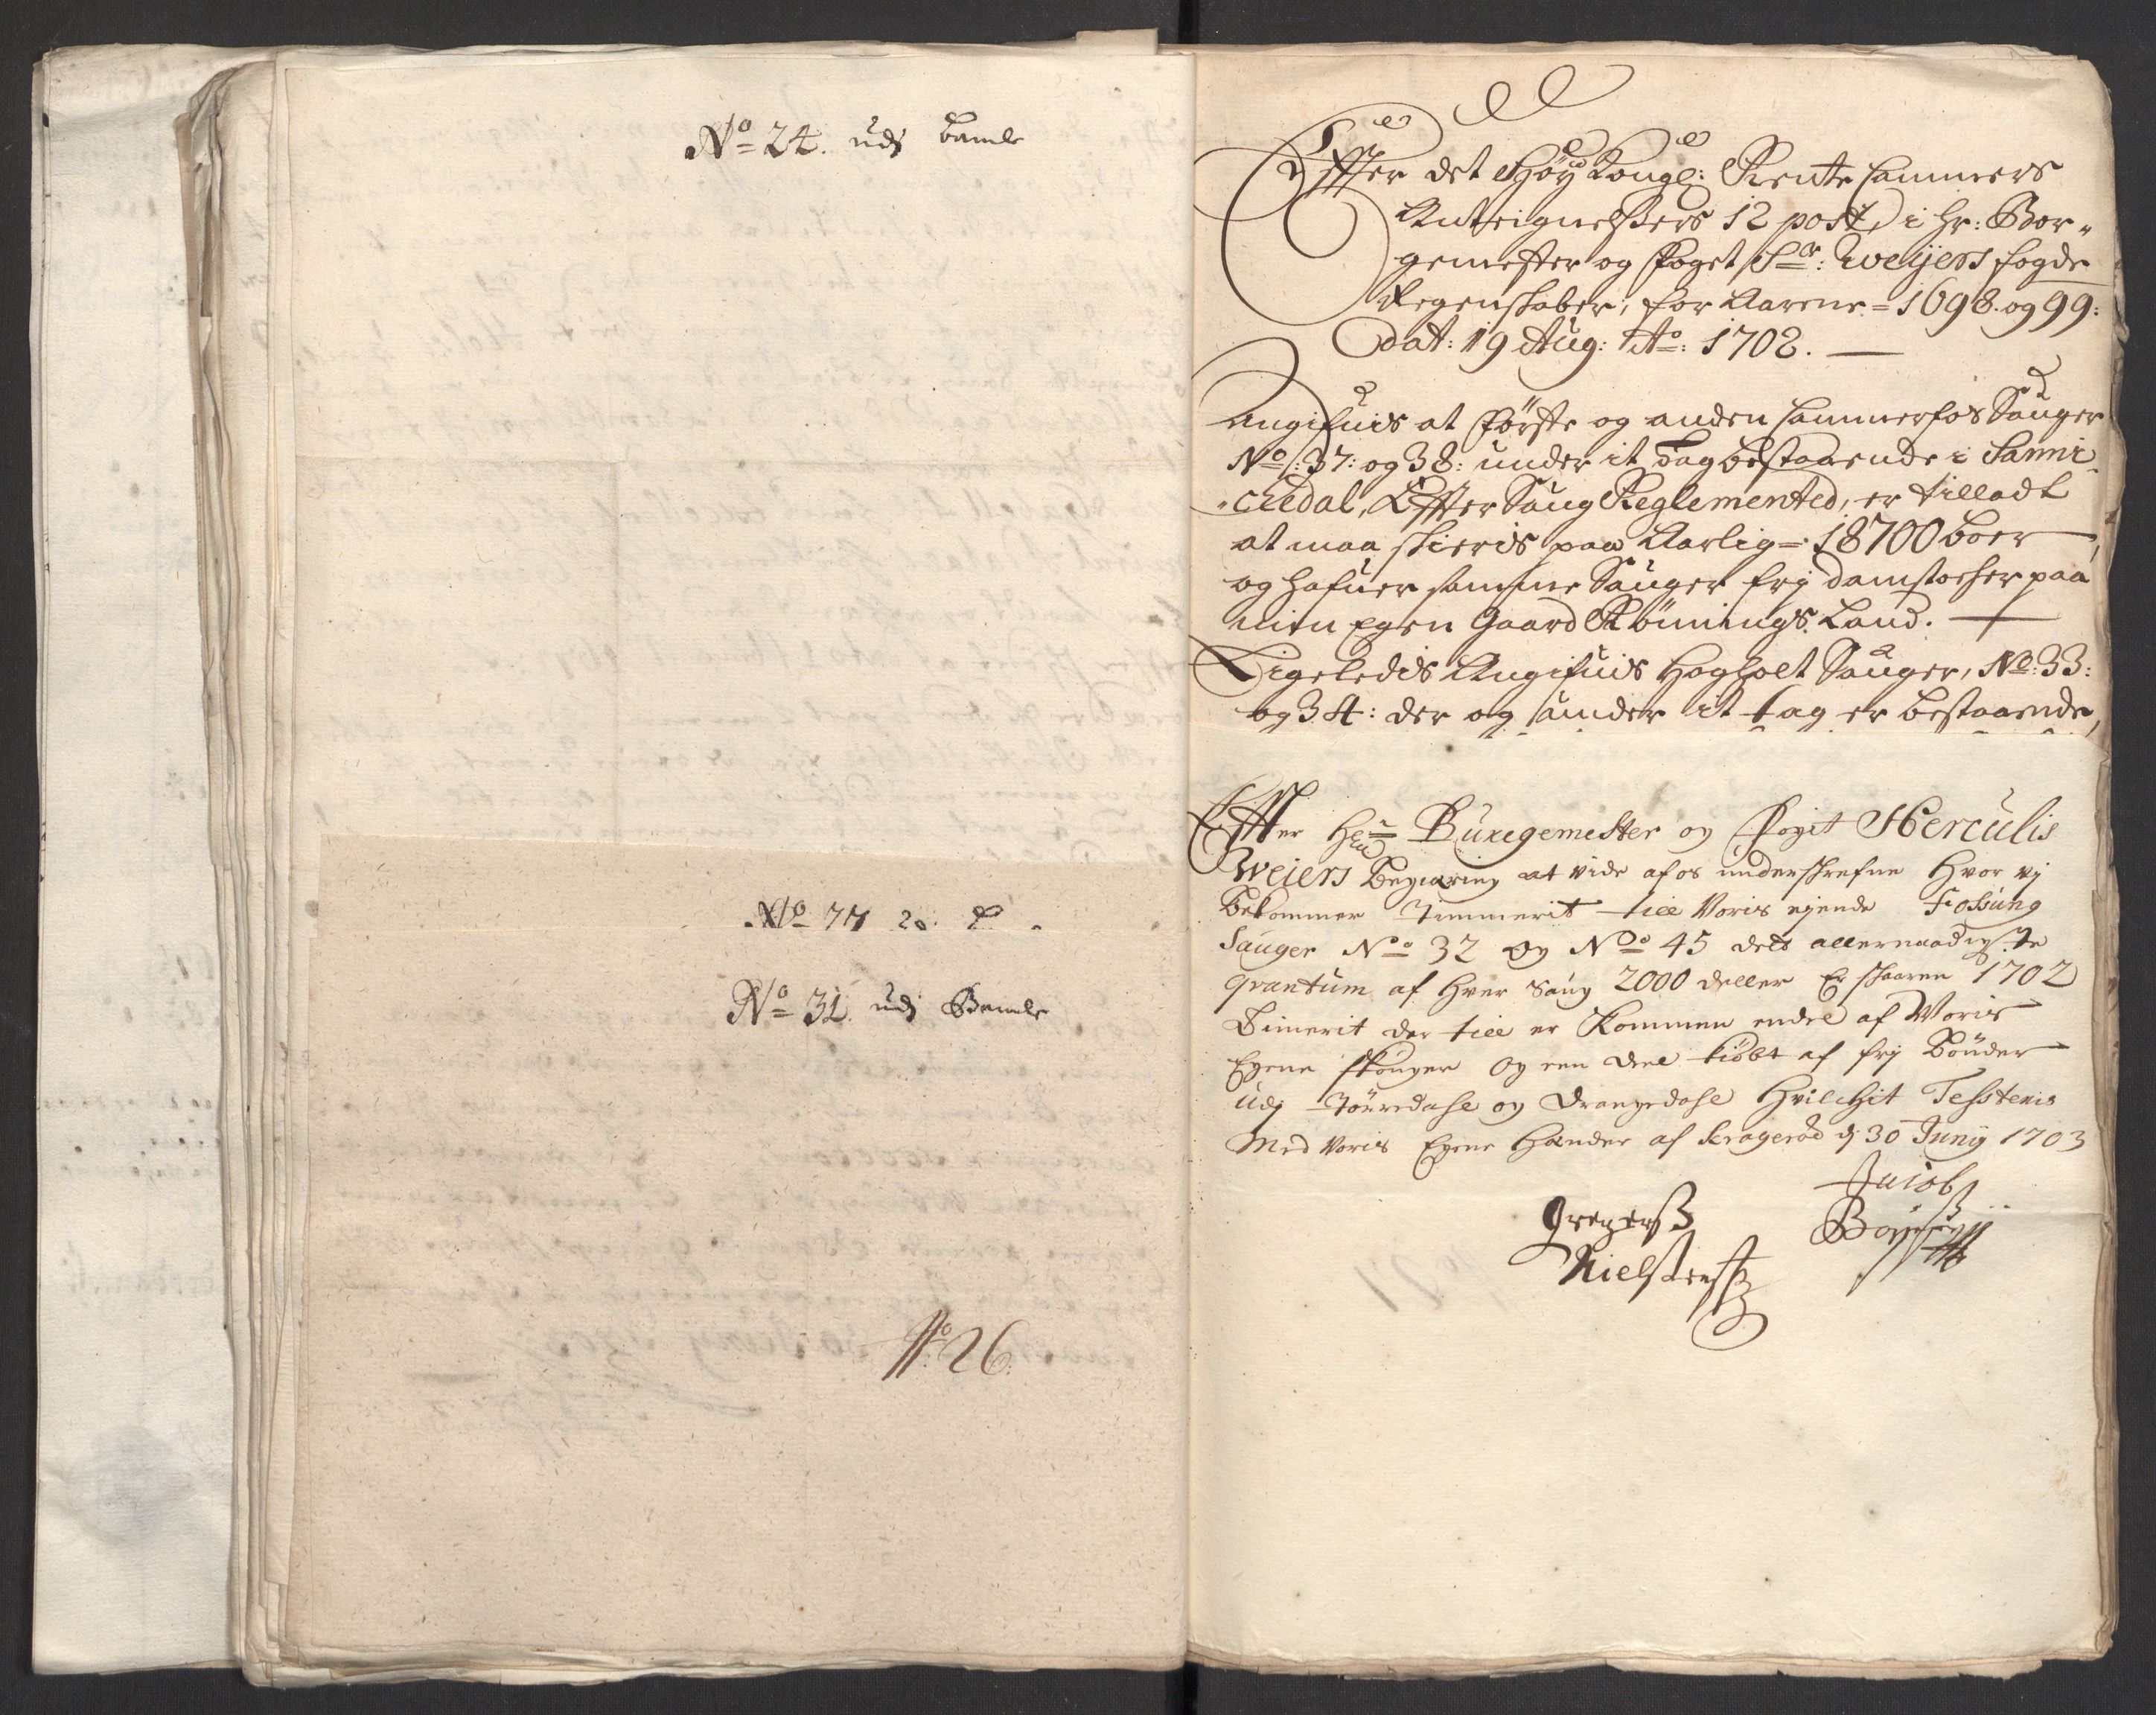 No 24. udj Bamle
No 77 20. D
No 31. udj Bamle
No 26.
Effter det Høy Kongl: Rente Cammers
Anteignelßers 12 post, i Hr: Bor-
gemester og Foget Sr: Weyers fogde
Regenskaber, for Aarene = 1698. og 99:
dat: 19 Aug: Ao: 1702.
Angifuis at Første og anden Cammerfos Sauger
No: 37: og 38: under it tag bestaaende i Sanni-
ckedal, Effter Saug Reglemented, er tilladt
at maa skieris paa Aarlig = 18700 boer
og hafuer samme Sauger frj damstocker paa
min Egen Gaard Rønnings Land.
Ligeledis Angifuis Hogholt Sauger, No: 33:
og 34: der og under it tag er bestaaende,
Effter Hr Buregemester og Fogit Herculis
Weiers Begiæring at vide af os underskrefne Hvor vj
Bekommer Timmerit till Voris ejende Fossing
Sauger No 32 og No 45 dett allernaadigste
qvantum af Hver Saug 2000 deller Er skaaren 1702
Timerit der till er Kommen endel af Voris
Egene skouger og een deel kiøbt af frj Bønder
udj Tørredahl og Drangedahl Hvilchit Testeris
Med Voris Egene Hænder af Kragerød dj 30 Junij 1703
Jacob
Boyesen
Gregerss
Nielssen